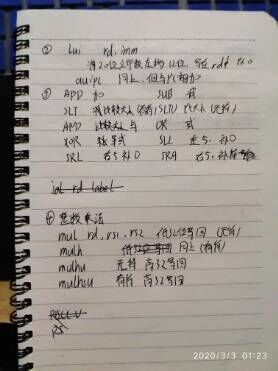 ② lui rd, imm
将20位立即数左移12位,写在rd中
auipc 同上,但与PC相加
③ ADD 加 SUB 减
SLT 比较大小 (SLTU 比大小(无符)
AND 与 OR 或
XOR 异或 SLL 左移,补0
SRL 右移补0 SRA 右移,补
jal rd label
④ 整数乘法
mul rd, rs1, rs2 低32位写回 (无符)
mulh 同上 (有符)
mulhu 无符 高32写回
mulhsu 有符 高32写回
2020/3/3 01:23